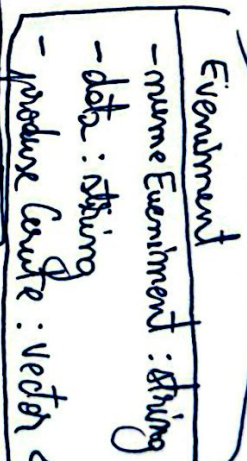 Eveniment
- numeEveniment : string
- data : string
- produse Cerute : vector <